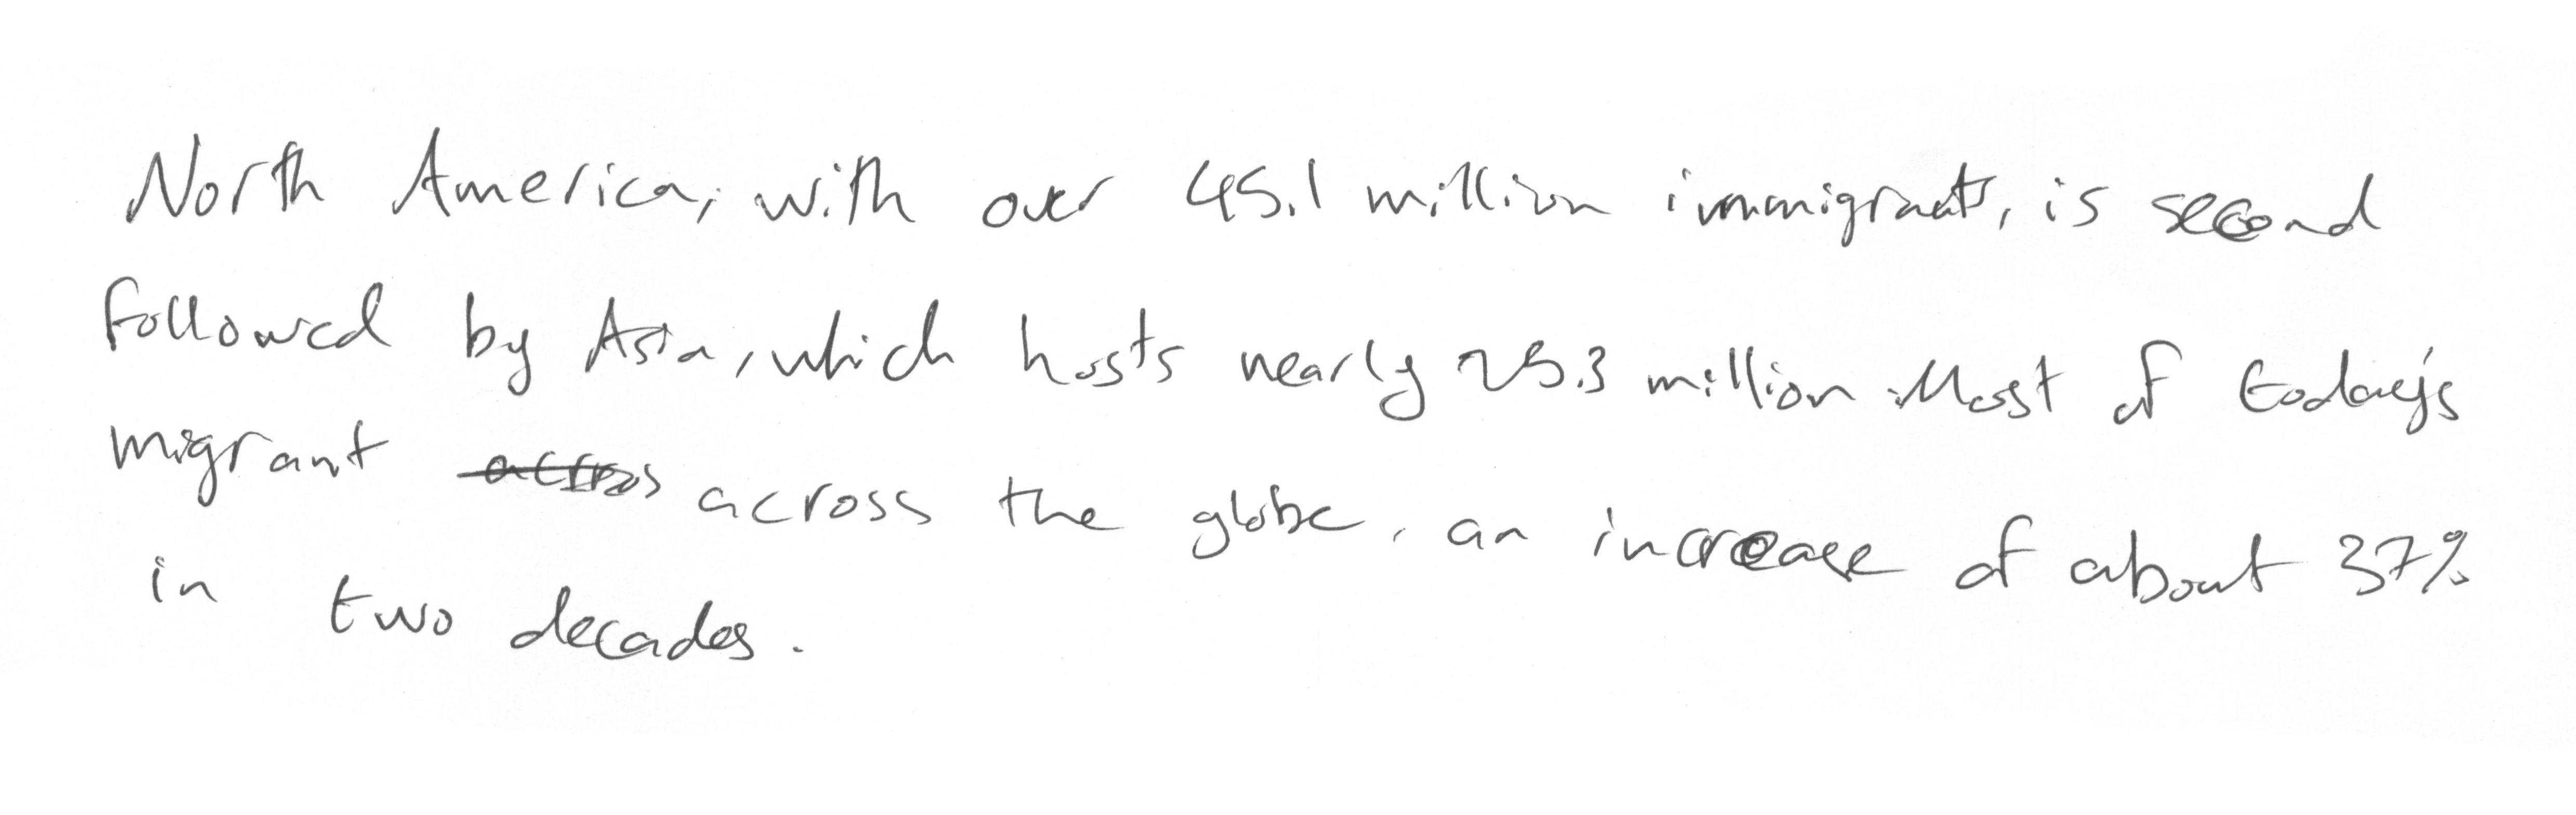 North America, with over 45.1 million immigrants, is second
followed by Asia, which hosts nearly 25.3 million. Most of today's
migrant across the globe, an increase of about 37%
in two decades.